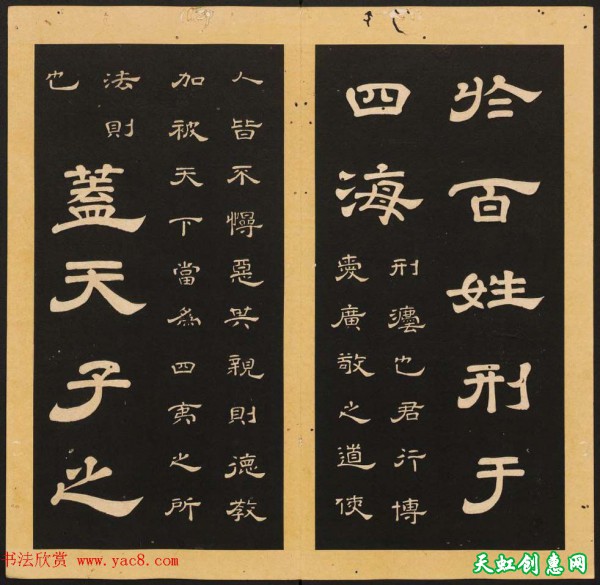 於百姓刑于
四海
刑灋也君行博
愛廣敬之道使
人皆不慢惡其親則德教
加被天下當為四夷之所
法則
也
蓋天子之
书法欣赏 www.yac8.com
天虹创惠网